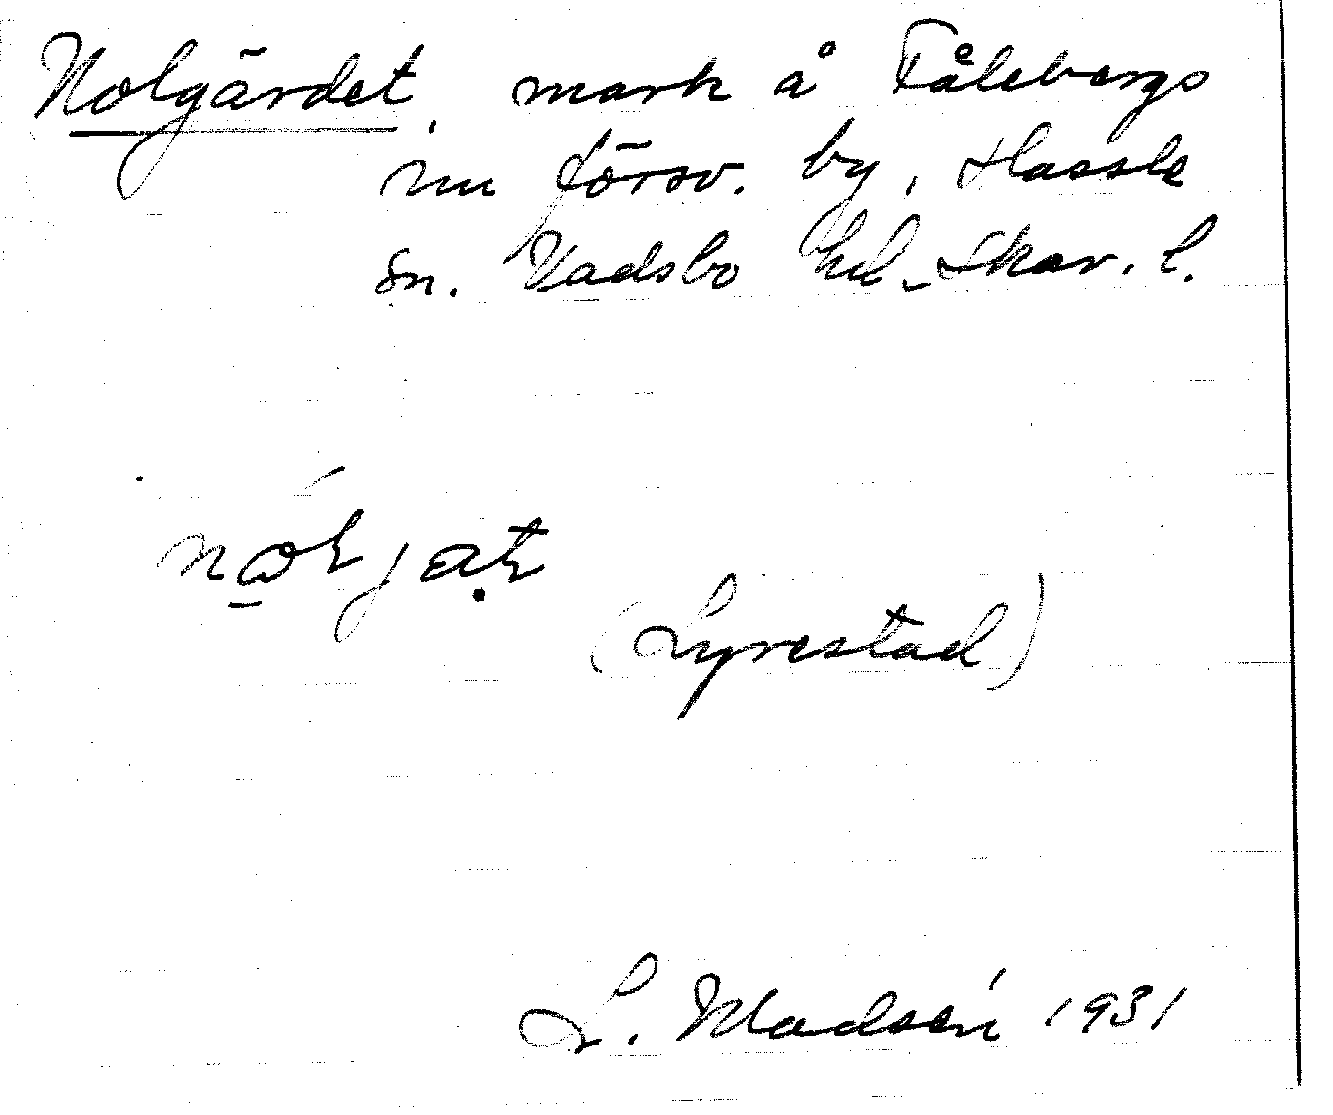 Nolgärdet, mark å Fålebergs
nu försv. by, Hassle
sn. Vadsbo hd. Skar. l.
(Lyrestad)
L. Madsén 1931